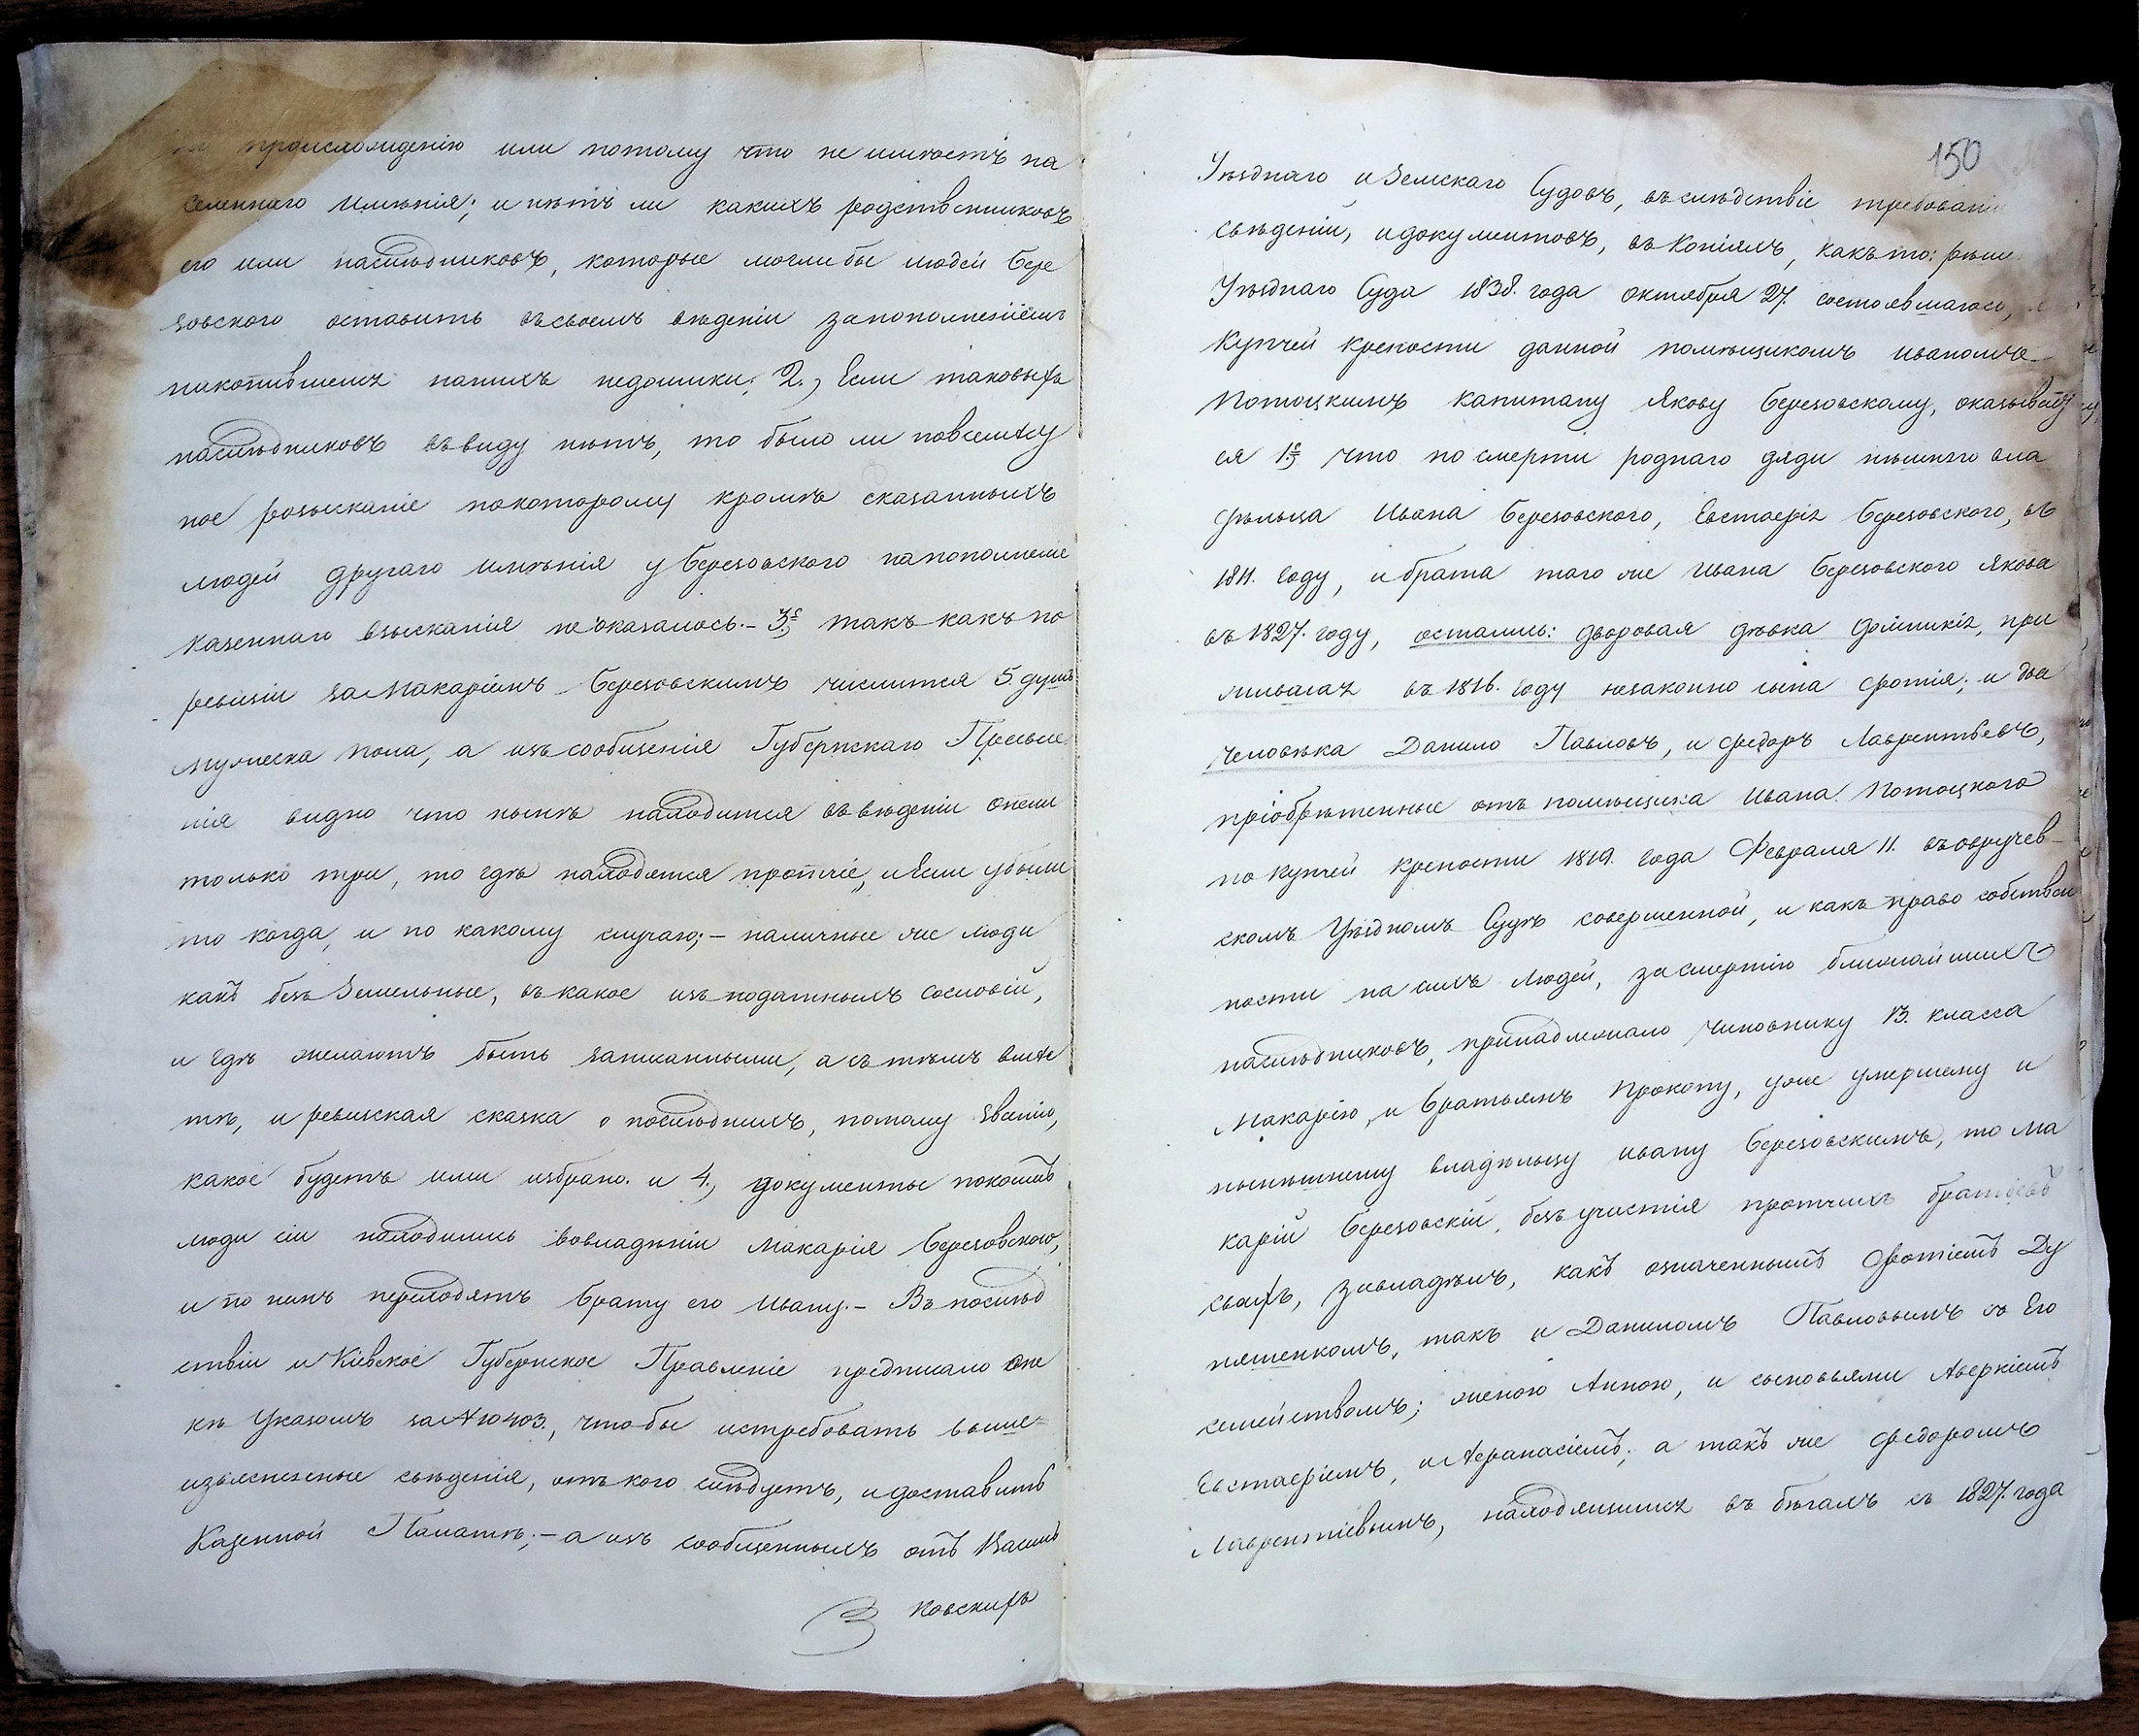 происхожденію или потому что не имѣетъ на
селеннаго имѣнія; и нѣтъ ли какихъ родственниковъ
его или наслѣдниковъ, которые моглибы людей Бере
зовского оставить въсвоемъ вѣденіи запополненіемъ
накопившемся нанихъ недоимки; 2., Если таковыхъ
наслѣдниковъ ввиду нѣтъ, то было ли повсемѣст
ное розысканіе покоторому кромѣ сказанныхъ
людей другаго имѣнія у Березовского напополненіе
Казеннаго взысканія не оказалось.- 3е, такъ какъ по
ревизіи за Макаріемъ Березовскимъ числится 5 душъ
мужеска пола, а изъ сообщенія Губернскаго Правле
нія видно что нынѣ находится въ вѣденіи Опеки
только три, то гдѣ находятся протчіе, иЕсли убыли
то когда, и по какому случаю;- наличные же люди
какъ безъ Земельные, въ какое изъ податныхъ сословій,
и гдѣ желаютъ быть записанными, а съ тѣмъ вмѣс
тѣ, и ревизская сказка о послѣднихъ, потому званію,
какое будетъ ими избрано. и 4., документы покоимъ
люди сіи находились вовладѣніи Макарія Березовского,
и по чемъ переходятъ брату его Ивану.- Въ послѣд
ствіи и Кіевское Губернское Правленіе предписало опе
кѣ Указомъ за № 10403., чтобы истребовать выше=
изъясненные свѣденія, отъ кого слѣдуетъ, и доставить
Казенной Палатѣ;- а изъ сообщенныхъ отъ Василь
ковскихъ
150
Уѣзднаго и Земскаго Судовъ, въслѣдствіе требованія
свѣденій, и документовъ, въ Копіяхъ, какъ то: рѣше
Уѣзднаго Суда 1838. года октября 27. состоявшагося,
Купчей крепости данной помѣщикомъ Иваномъ
Потоцкимъ капитану Якову Березовскому, оказывает
ся 1е, что по смерти роднаго дяди нынѣшняго вла
дѣльца Ивана Березовского, Евстафія Березовского, въ
1811. Году, и брата того же Ивана Березовского Якова
въ 1827. году, остались: дворовая дѣвка Домникія, при
жившая въ 1816. году незаконно сына Фотія; и два
человѣка Данило Павловъ, и Федоръ Лаврентьевъ,
пріобрѣтенные отъ помѣщика Ивана Потоцкого
по купчей крепости 1819. года Февраля 11. въ овручев-
скомъ Уѣздномъ Судѣ совершенной, и какъ право собствен
ности на сихъ Людей, за смертію ближайшихъ
наслѣдниковъ, принадлежало чиновнику 13. класса
Макарію, и братьямъ Прокопу, уже умершему и
нынѣшнему владѣльцу Ивану Березовскимъ, то Ма
карій Березовскій, безъ участія протчихъ братьевъ
своихъ, завладѣлъ, какъ означеннымъ Фотіемъ Ду
няшенкомъ, такъ и Даниломъ Павловымъ съ Его
семействомъ; женою Анною, и сыновьями Аверкіемъ
Евстафіемъ, и Афанасіемъ; а такъ же Федоромъ
Лаврентіевымъ, находящимся въ бѣгахъ съ 1827. года